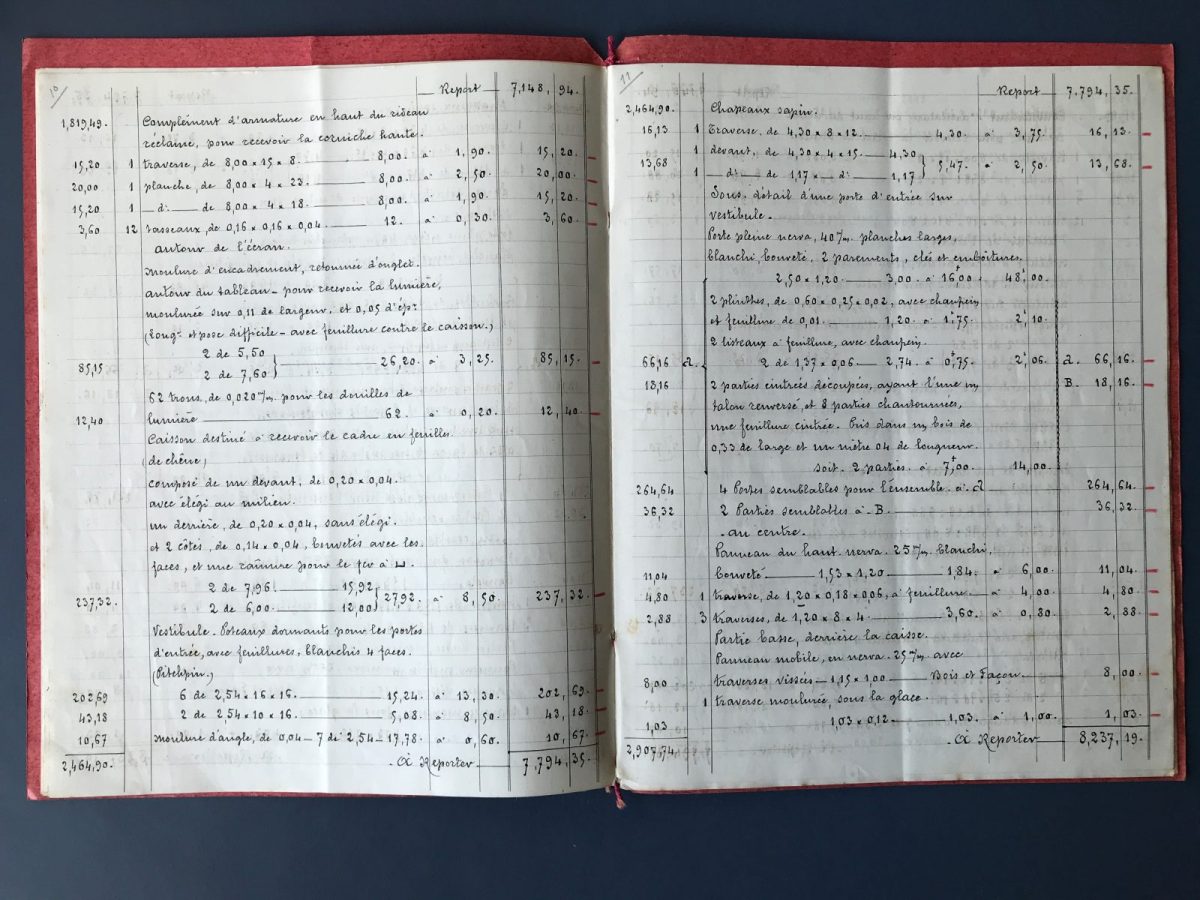 10/
Report 7,148, 94.
1,819,49. Complément d'armature en haut du rideau
réclame, pour recevoir la corniche haute.
15,20 1 traverse, de 8,00 x 15 x 8. 8,00. à 1,90. 15, 20.
20,00 1 planche, de 8,00 x 4 x 23. 8,00. à 2,50. 20,00.
15,20 1 d°: de 8,00 x 4 x 18. 8,00. à 1,90. 15, 20.
3,60 12 tasseaux, de 0,16 x 0,16 x 0,04. 12. à 0,30. 3, 60.
autour de l'écran.
moulure d'encadrement, retournée d'onglet.
autour du tableau - pour recevoir la lumière,
moulurée sur 0,11 de largeur. et 0,05 d'épr
(Longr et pose difficile - avec feuillure contre le caisson.)
2 de 5,50
85,15 26,20. à 3,25. 85, 15.
2 de 7,60
62 trous, de 0,020 m/m. pour les douilles de
12,40 lumière 62. à 0,20. 12, 40.
Caisson destiné à recevoir le cadre en feuilles
(de chêne,)
composé de un devant. de 0,20 x 0,04.
avec élégi au milieu.
un derrière, de 0,20 x 0,04, sans élégi.
et 2 côtés, de 0,14 x 0,04, bouvetés avec les
faces, et une rainure pour le fer à ⊔.
2 de 7,96. 15,92
237,32. 27,92. à 8,50. 237, 32.
2 de 6,00. 12,00
Vestibule. Poteaux dormants pour les portes
d'entrée, avec feuillures, blanchis 4 faces.
(Pitchpin.)
202,69 6 de 2,54 x 16 x 16. 15,24. à 13,30. 202, 69.
43,18 2 de 2,54 x 10 x 16. 5,08. à 8,50. 43, 18.
10,67 moulure d'angle, de 0,04 - 7 de 2,54 - 17,78. à 0,60. 10, 67.
2,464,90. À Reporter 7,794, 35.
11/
Report 7,794, 35.
2,464,90. Chapeaux sapin.
16,13 1 Traverse, de 4,30 x 8 x 12. 4,30. à 3,75. 16, 13.
1 devant, de 4,30 x 4 x 15 4,30
13,68 5,47. à 2,50. 13,68.
1 d°: de 1,17 x d°: 1,17
Sous. détail d'une porte d'entrée sur
vestibule.
Porte pleine nerva, 40 m/m. planches larges,
blanchi, bouveté, 2 parements, clés et emboîtures,
2,50 x 1,20. 3,00 à 16,00 48,00.
2 plinthes, de 0,60 x 0,25 x 0,02, avec chanfrein
et feuillure de 0,01. 1,20 à 1,75. 2,10.
2 listeaux à feuillure, avec chanfrein.
66,16 a. 2 de 1,37 x 0,06 2,74 à 0,75. 2,06. a. 66, 16.
18,16 2 parties cintrées découpées, ayant l'une un B. 18, 16.
talon renversé et 8 parties chantournées,
une feuillure cintrée. Pris dans un bois de
0,33 de large et un mètre 04 de longueur.
soit. 2 parties. à 7,00. 14,00.
264,64 4 Portes semblables pour l'ensemble. à a 264, 64.
36,32 2 Parties semblables à B. 36, 32.
au centre.
Panneau du haut. nerva. 25 m/m. blanchi,
11,04 bouveté 1,53 x 1,20 1,84. à 6,00. 11, 04.
4,80 1 traverse, de 1,20 x 0,18 x 0,06, à feuillure. à 4,00. 4, 80.
2,88 3 traverses, de 1,20 x 8 x 4. 3,60. à 0,80. 2, 88.
Partie basse, derrière la caisse.
Panneau mobile, en nerva. 25 m/m avec
8,00 traverses vissées 1,15 x 1,00 Bois et Façon. 8, 00.
1 traverse moulurée, sous la glace.
1,03 1,03 x 0,12. 1,03. à 1,00. 1, 03.
2,907,74. À Reporter 8,237, 19.